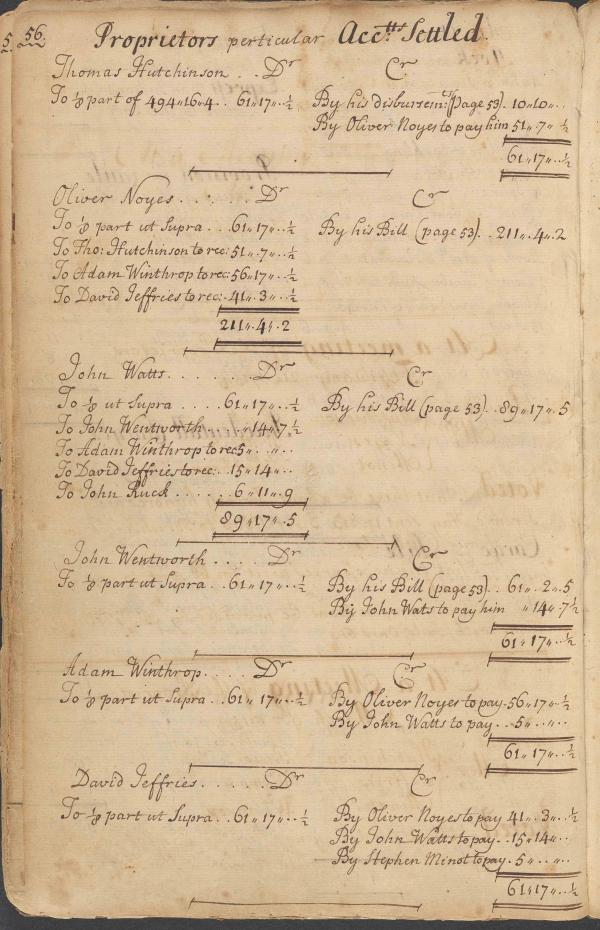 5. 56. Proprietors perticular Acc.tts Settled.
Thomas Hutchinson . . Dr Cr
To ⅛ part of 494"16"4 . . 61"17" . ½ By his disbursemts (page 53) . 10"10" . .
By Oliver Noyes to pay him 51"7" ½
61"17" . ½
Oliver Noyes . . . . . . Dr Cr
To ⅛ part ut Supra . . . 61"17" . . ½ By his Bill (page 53) . . 211"4"2
To Tho: Hutchinson to rec: 51"7" . . ½
To Adam Winthrop to rec: 56"17" . . ½
To David Jeffries to rec: . . 41"3" . . ½
211"4"2
John Watts . . . . . . . Dr Cr
To ⅛ ut Supra . . . . 61"17" . . ½ By his Bill (page 53) . . 89"17"5
To John Wentworth . . . . "14"7½
To Adam Winthrop to rec: 5" . . " . .
To David Jeffries to rec: . . 15"14" . .
To John Ruck . . . . . 6"11"9
89"17"5
John Wentworth . . . . Dr Cr
To ⅛ part ut Supra . . 61"17" . . ½ By his Bill (page 53) . . 61"2"5
By John Wats to pay him "14"7½
61"17" . ½
Adam Winthrop . . . . Dr Cr
To ⅛ part ut Supra . . 61"17" . . ½ By Oliver Noyes to pay . 56"17" . ½
By John Watts to pay . . 5" . . " . .
61"17" . . ½
David Jeffries . . . . . . Dr Cr
To ⅛ part ut Supra . . 61"17" . . ½ By Oliver Noyes to pay 41"3" . . ½
By John Watts to pay . . 15"14" . .
By Stephen Minot to pay . 5" . . " . .
61"17" . . ½